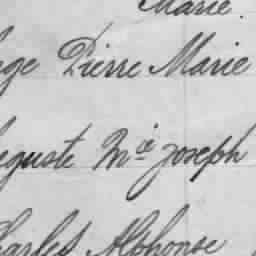 Marie.
Pierre Marie
Auguste Mie Joseph
Charles Alphonse